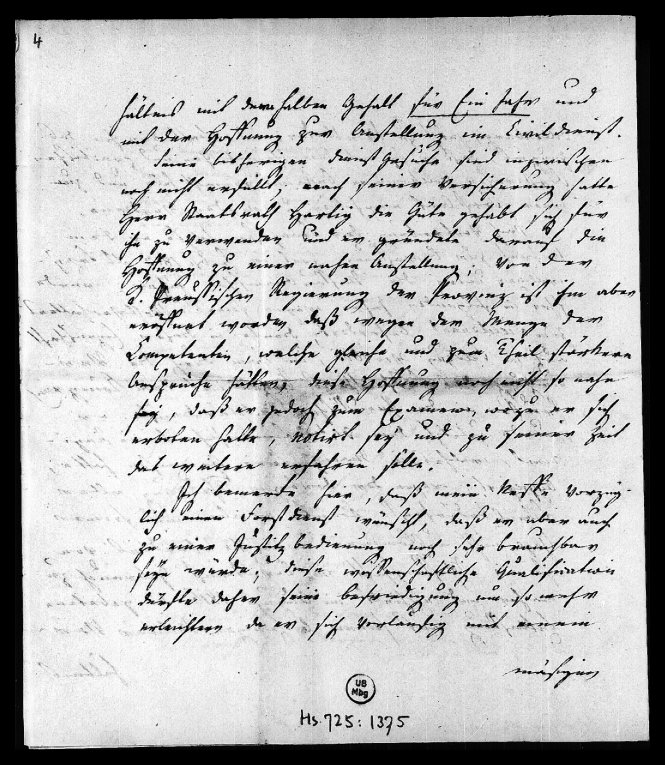 4
hältnis mit dem halben Gehalt für Ein Jahr und
mit der Hoffnung zur Anstellung im Civildienst.
Seine bisherigen Dienst Gesuche sind inzwischen
noch nicht erfüllt; nach seiner Versicherung hatte
Herr Staatsrath Hartig die Güte gehabt sich für
ihn zu verwenden und er gründete darauf die
Hoffnung zu einer nahen Anstellung; von der
K. Preussischen Regierung der Provinz ist ihm aber
eröffnet worden, daß wegen der Menge der
Competenten, welche gleiche und zum Theil stärkere
Ansprüche hätten, diese Hoffnung noch nicht so nahe
sey, daß er jedoch zum Examen, wozu er sich
erboten hatte, notirt sey und zu seiner Zeit
das weitere erfahren solle.
Ich bemerke hier, daß mein Neffe vorzüg-
lich einen Forstdienst wünscht, daß er aber auch
zu einer Justitz bedienung noch sehr brauchbar
seyn würde; diese wissenschaftliche Qualification
dürfte daher seine befriedigung um so mehr
erleichtern da er sich vorläufig mit einem
mäsigen
UB
Mbg
Hs. 725: 1375